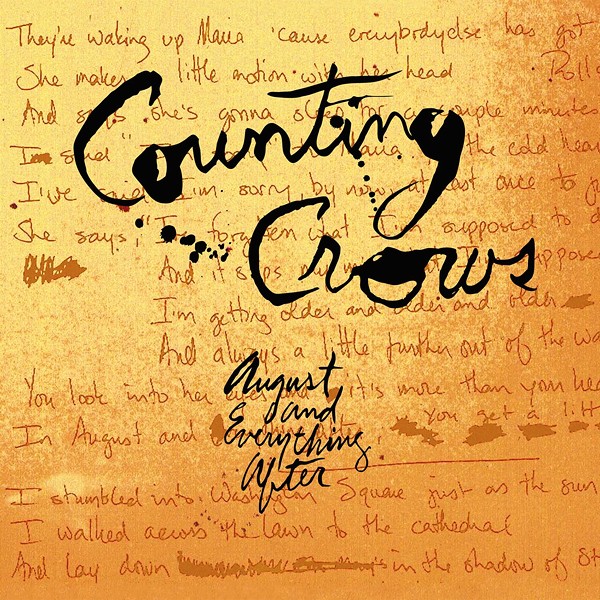 They're waking up Maria 'cause everybodyelse has got
She makes little motion with her head Rolls
And says she's gonna sleep for a couple minutes
I'm said I'm Maria the cold hear
I've said I'm sorry by now, at last once to ju
She says, "I've forgotten what I'm supposed to d
And it slips my mind I'm suppose
I'm getting older and older and older
And always a little further out of the wa
You look into her eyes and it's more than your hea
In August and You get a litt
I stumbled into Washington Square just as the sun
I walked across the lawn to the cathedral
And lay down in the shadow of St
Counting
Crows
August
and
Everything
After